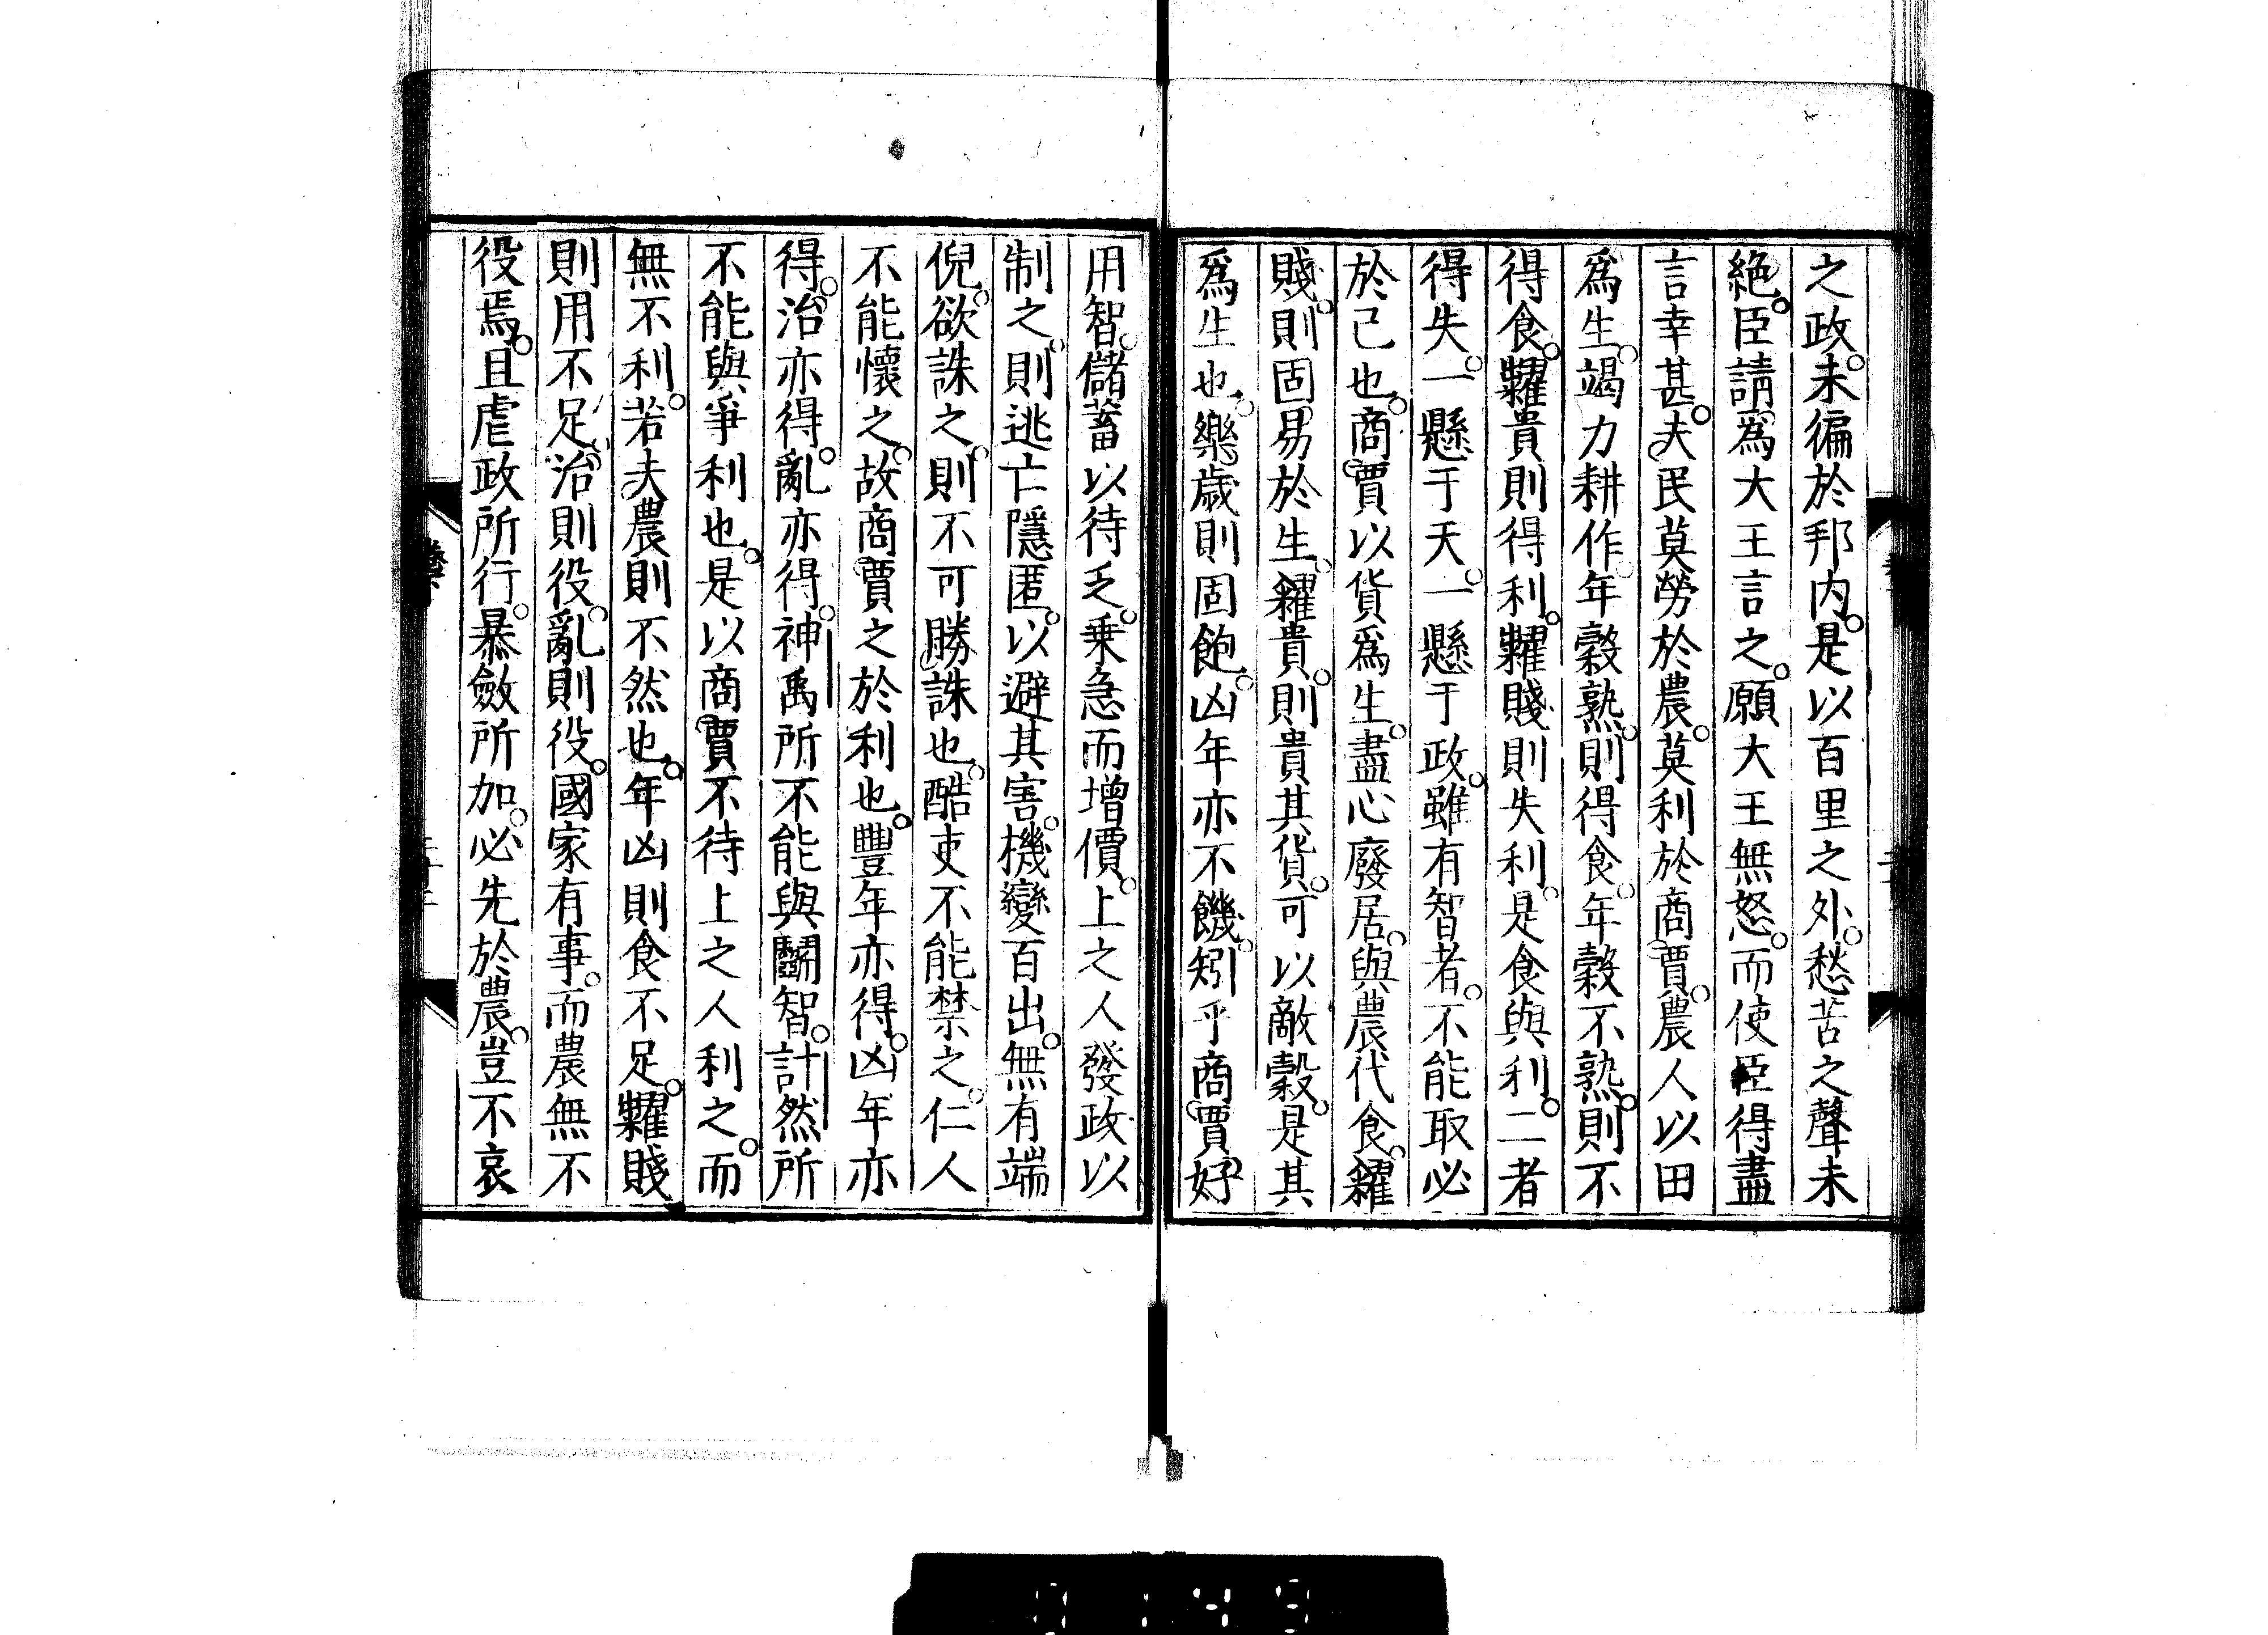 之政。未徧於邦内。是以百里之外。愁苦之聲未
絶。臣請爲大王言之。願大王無怒。而使臣得盡
言幸甚。夫民莫勞於農。莫利於商賈。農人以田
爲生。竭力耕作。年穀熟。則得食。年穀不熟。則不
得食。糶貴則得利。糶賤則失利。是食與利。二者
得失。一懸于天。一懸于政。雖有智者。不能取必
於己也。商賈以貨爲生。盡心廢居。與農代食。糴
賤。則固易於生。糴貴。則貴其貨。可以敵穀。是其
爲生也。樂歳則固飽。凶年亦不饑。矧乎商賈好
用智。儲蓄以待乏。乗急而增價。上之人發政以
制之。則逃亡隱匿。以避其害。機變百出。無有端
倪。欲誅之。則不可勝誅也。酷吏不能禁之。仁人
不能懷之。故商賈之於利也。豐年亦得。凶年亦
得。治亦得。亂亦得。神禹所不能與鬭智。計然所
不能與爭利也。是以商賈不待上之人利之。而
無不利。若夫農則不然也。年凶則食不足。糶賤
則用不足。治則役。亂則役。國家有事。而農無不
役焉。且虐政所行。暴斂所加。必先於農。豈不哀